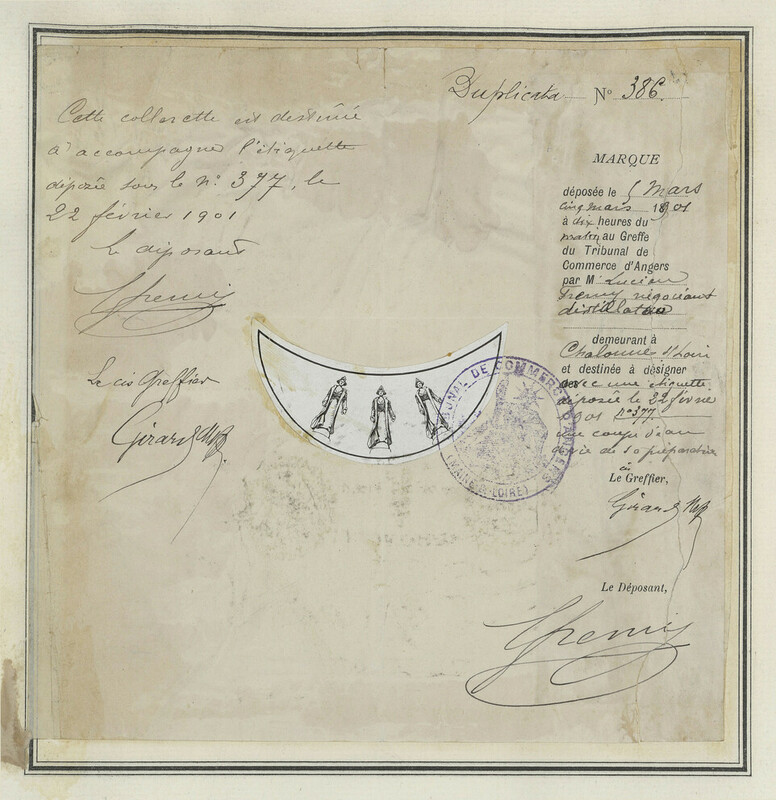 Duplicata N° 386.
Cette collerette est destinée
à accompagner l'étiquette
déposée sous le n° 377, le
22 février 1901
Le déposant
Fremy
Le cis Greffier
Girard
MARQUE
déposée le 5 Mars
cinq mars 1901
à dix heures du
matin au Greffe
du Tribunal de
Commerce d'Angers
par M Lucien
Fremy négociant
distillateur
demeurant à
Chalonnes s/ Loire
et destinée à désigner
avec une étiquette
déposée le 22 février
1901 n° 377
une coupe d'eau
de vie de sa préparation
cis
Le Greffier,
Girard
Le Déposant,
Fremy
TRIBUNAL DE COMMERCE D'ANGERS
(MAINE & LOIRE)